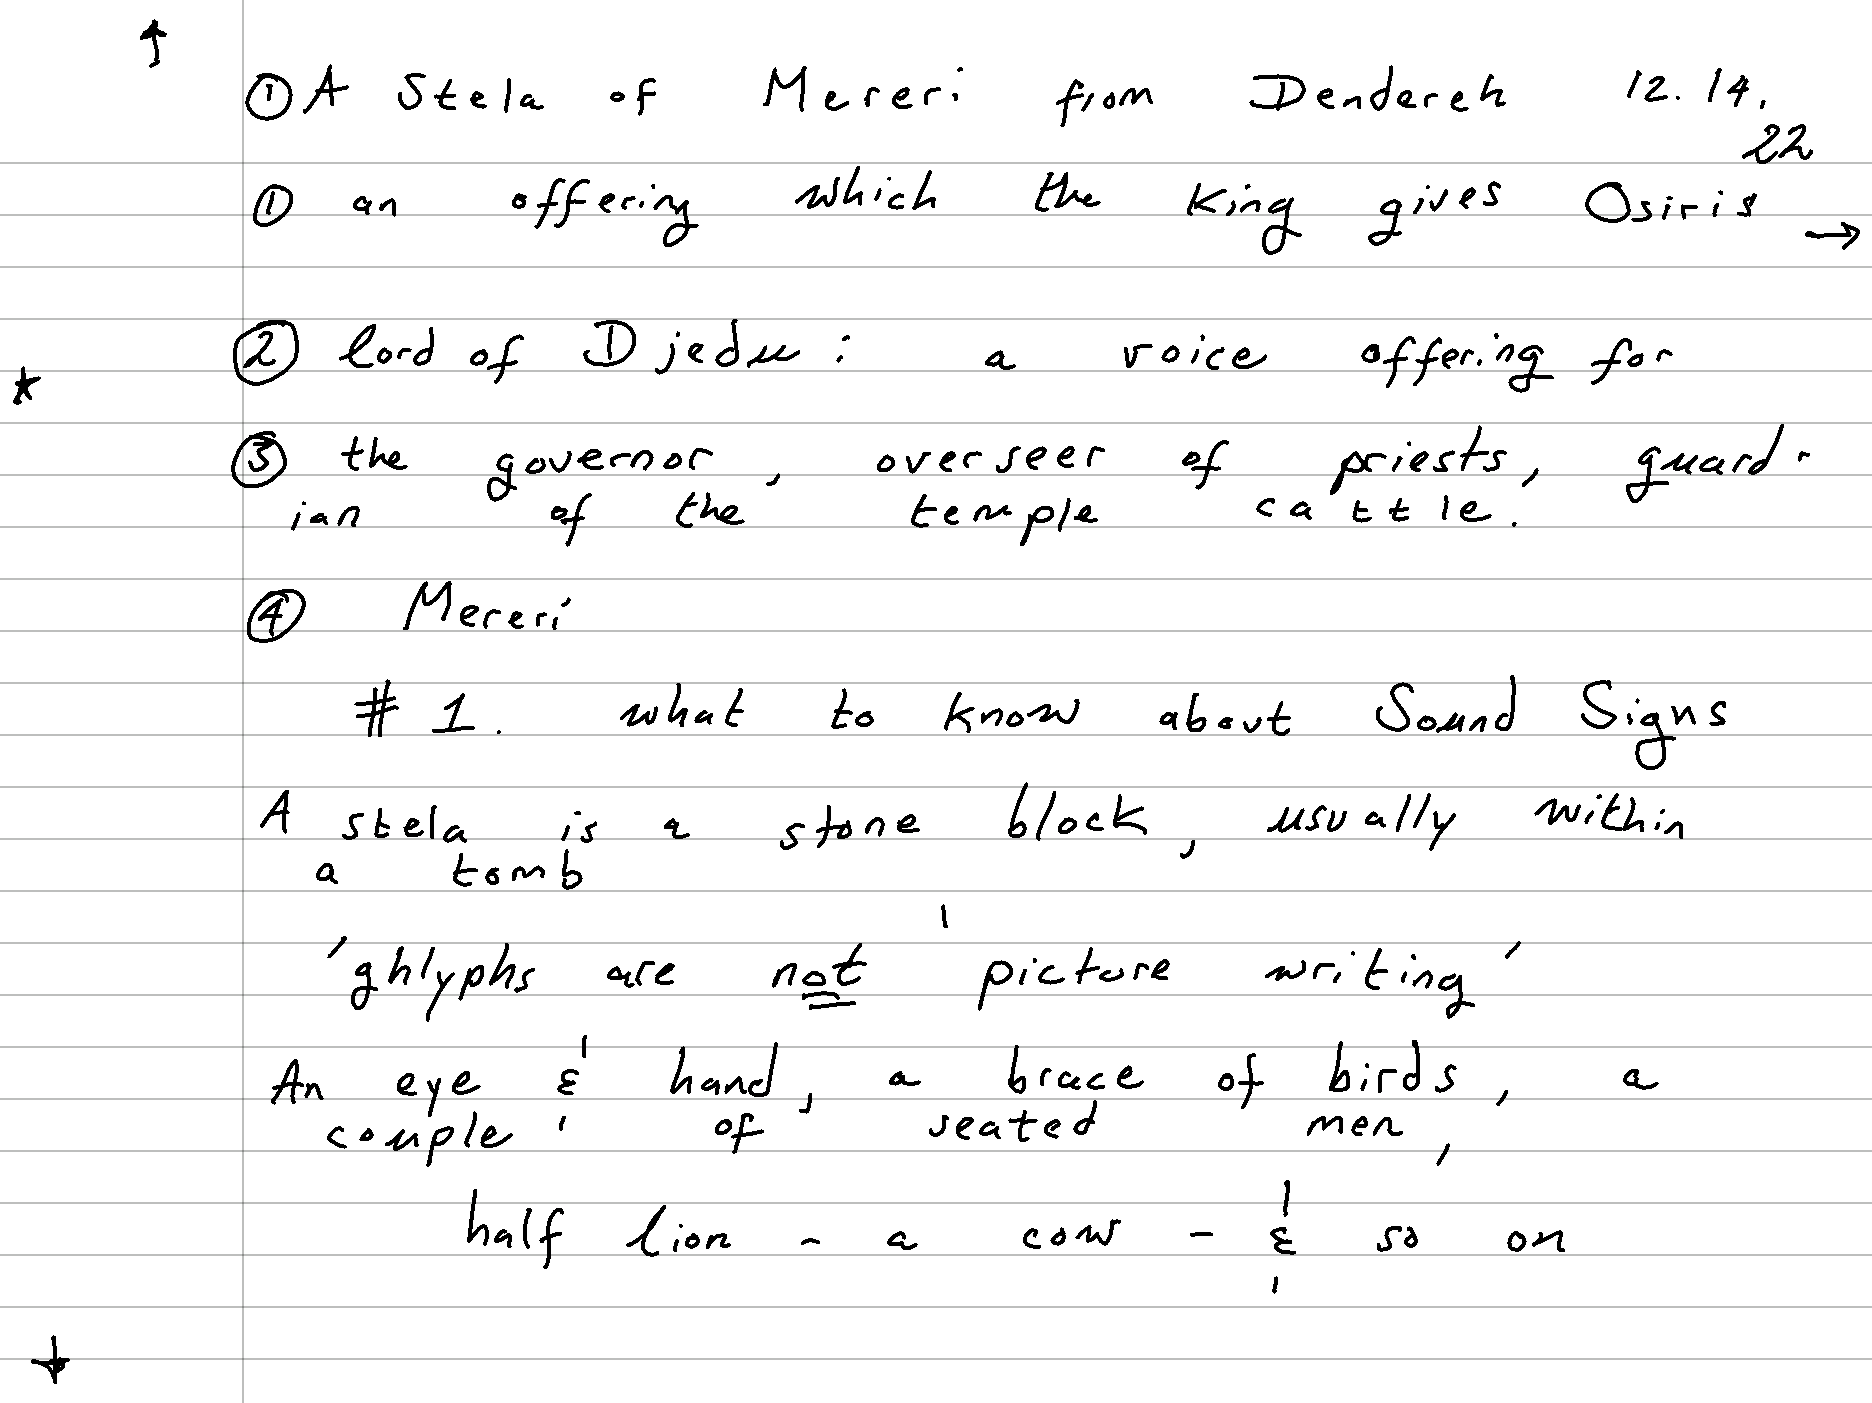 ↑
① A Stela of Mereri from Dendereh 12.14.
22
① an offering which the King gives Osiris →
② lord of Djedu : a voice offering for
* ③ the governor, overseer of priests, guard-
ian of the temple cattle.
④ Mereri
# 1. what to know about Sound Signs
A stela is a stone block, usually within
a tomb
'ghlyphs are not 'picture writing'
An eye & hand, a brace of birds, a
couple of seated men,
half lion - a cow - & so on
↓